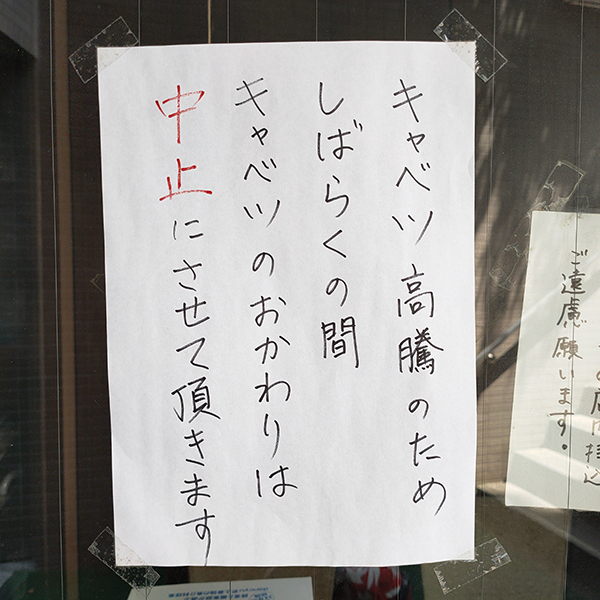 キャベツ高騰のため
しばらくの間
キャベツのおかわりは
中止にさせて頂きます
ご遠慮願います。